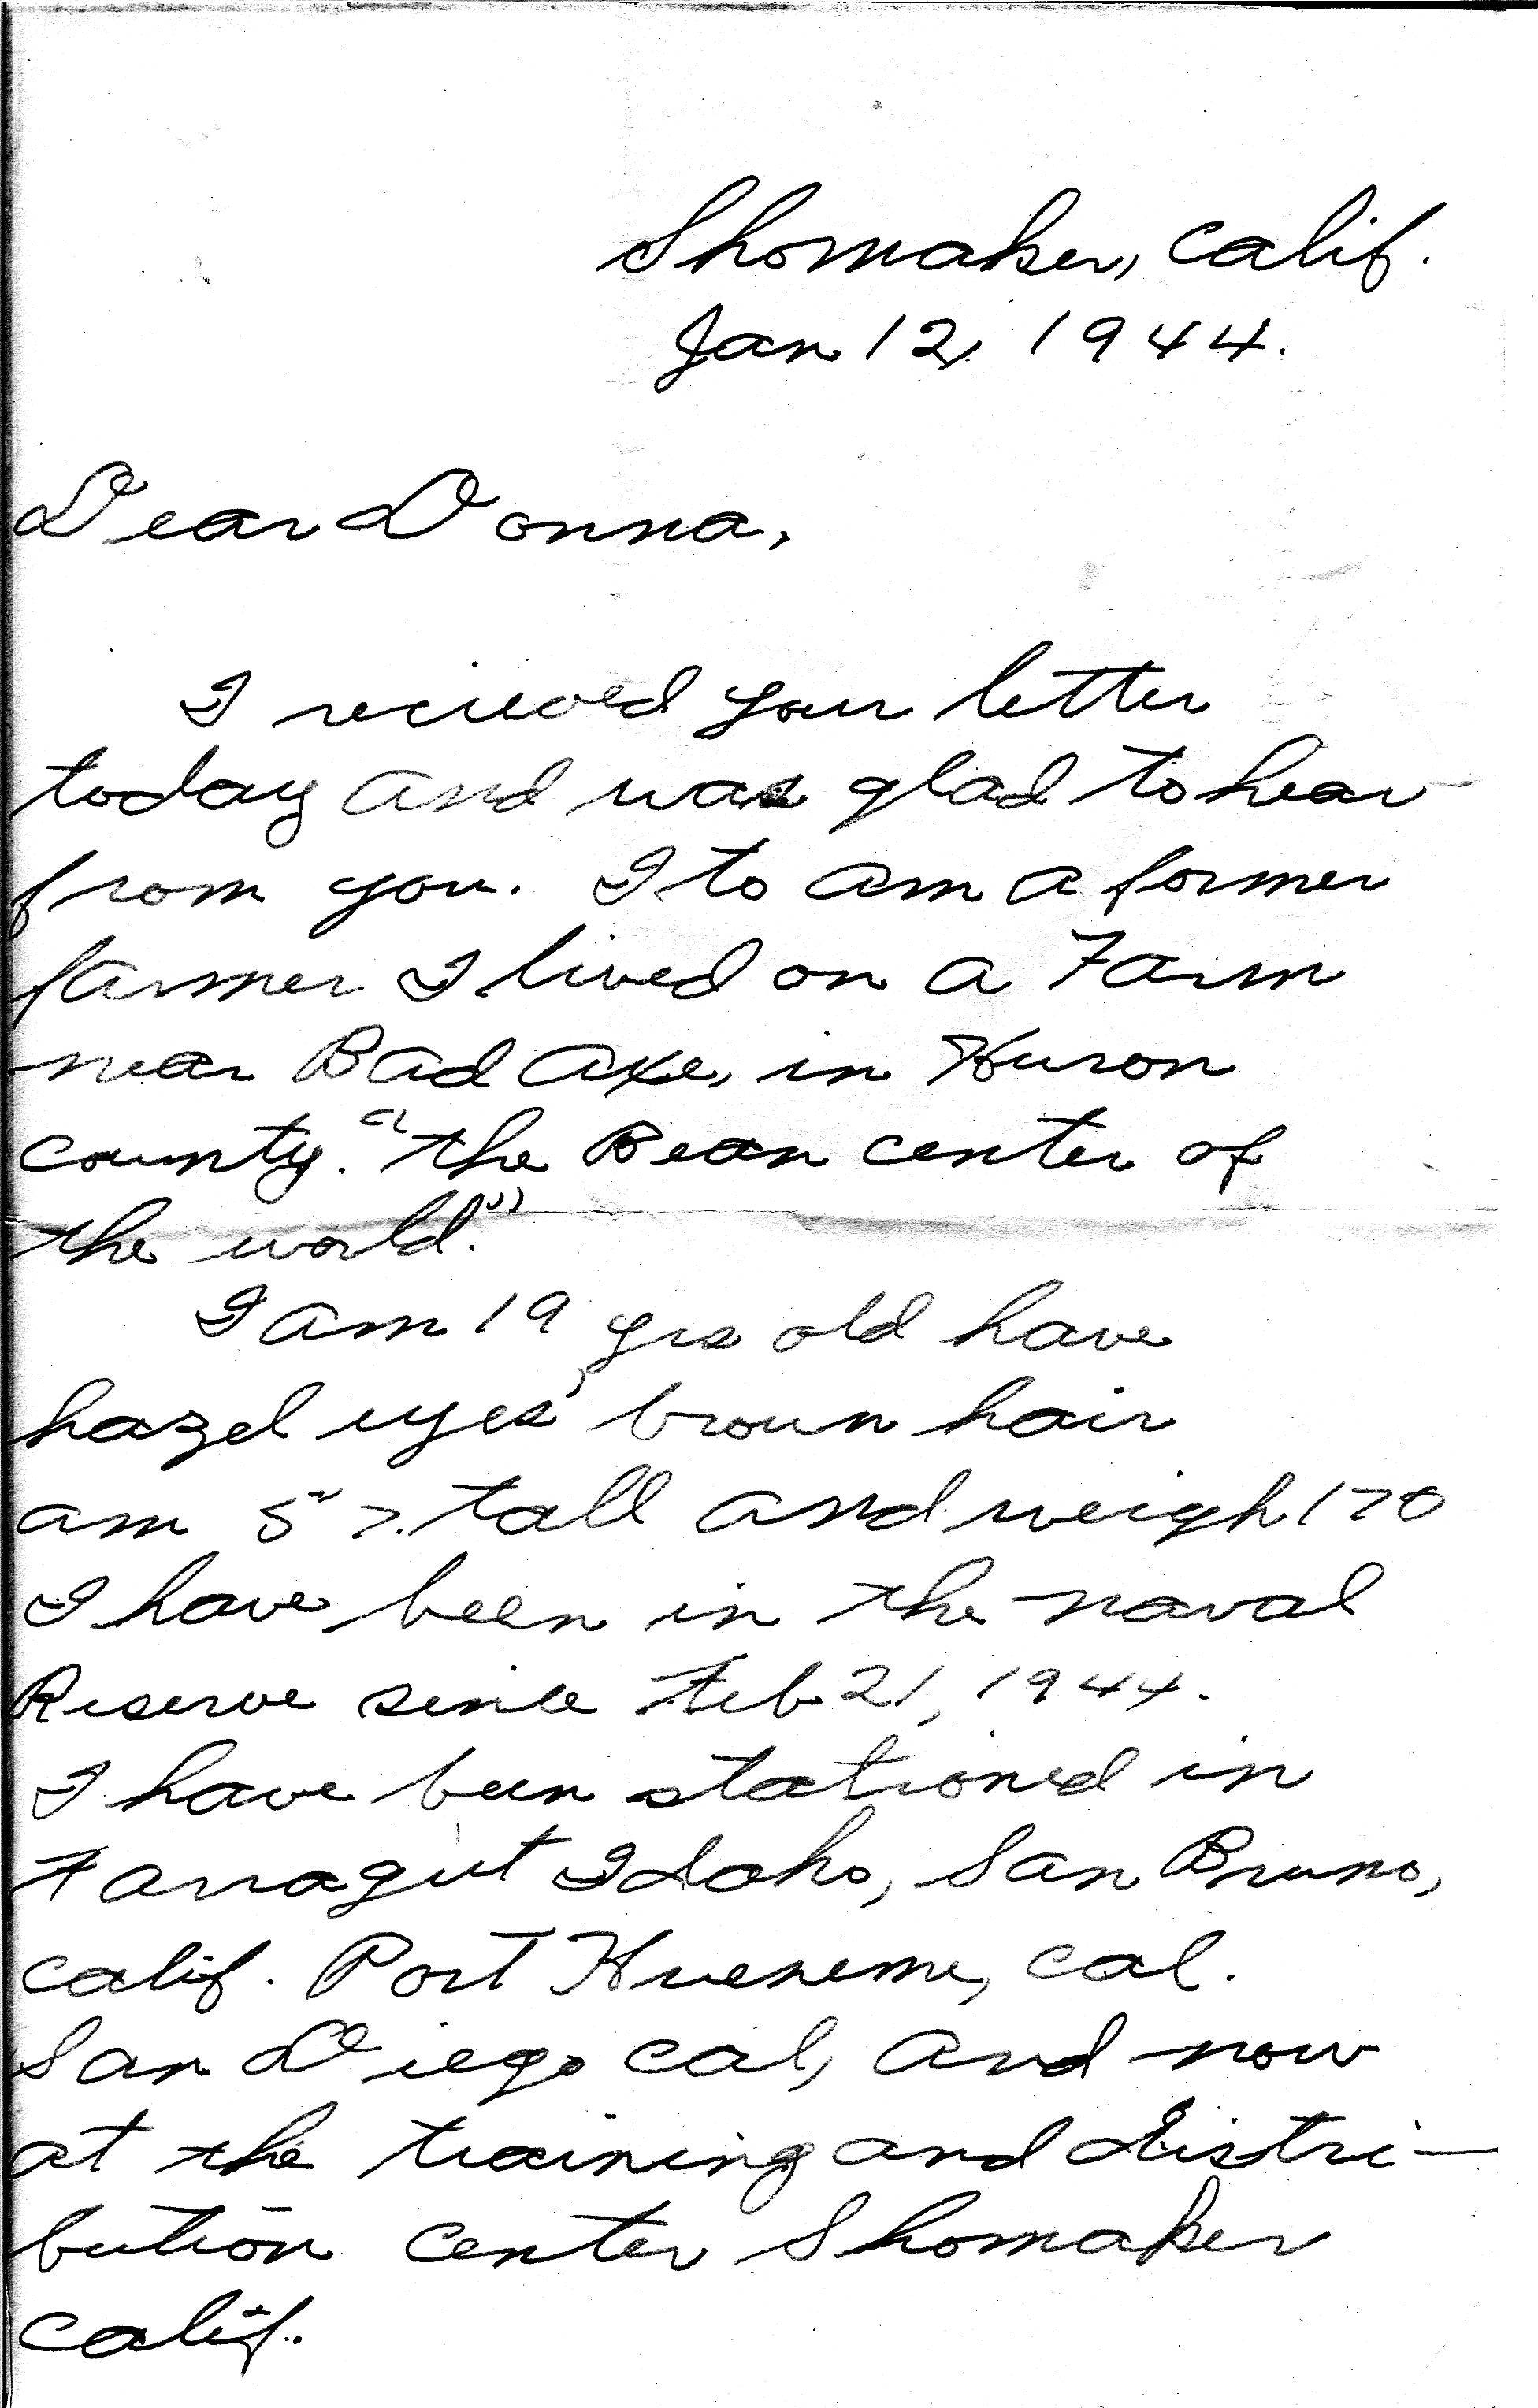 Shomaker, Calif.
Jan 12, 1944.
Dear Donna,
I recieved your letter
today and was glad to hear
from you. I to am a former
farmer I lived on a Farm
near Bad Axe, in Huron
county. "the Bean center of
the world."
I am 19 yrs old have
hazel eyes, brown hair
am 5" 7. tall and weigh 170
I have been in the naval
Reserve since Feb 21, 1944.
I have been stationed in
Farragut Idaho, San Bruno,
Calif. Port Hueneme, Cal.
San Diego Cal, and now
at the training and distri-
bution center Shomaker
Calif.